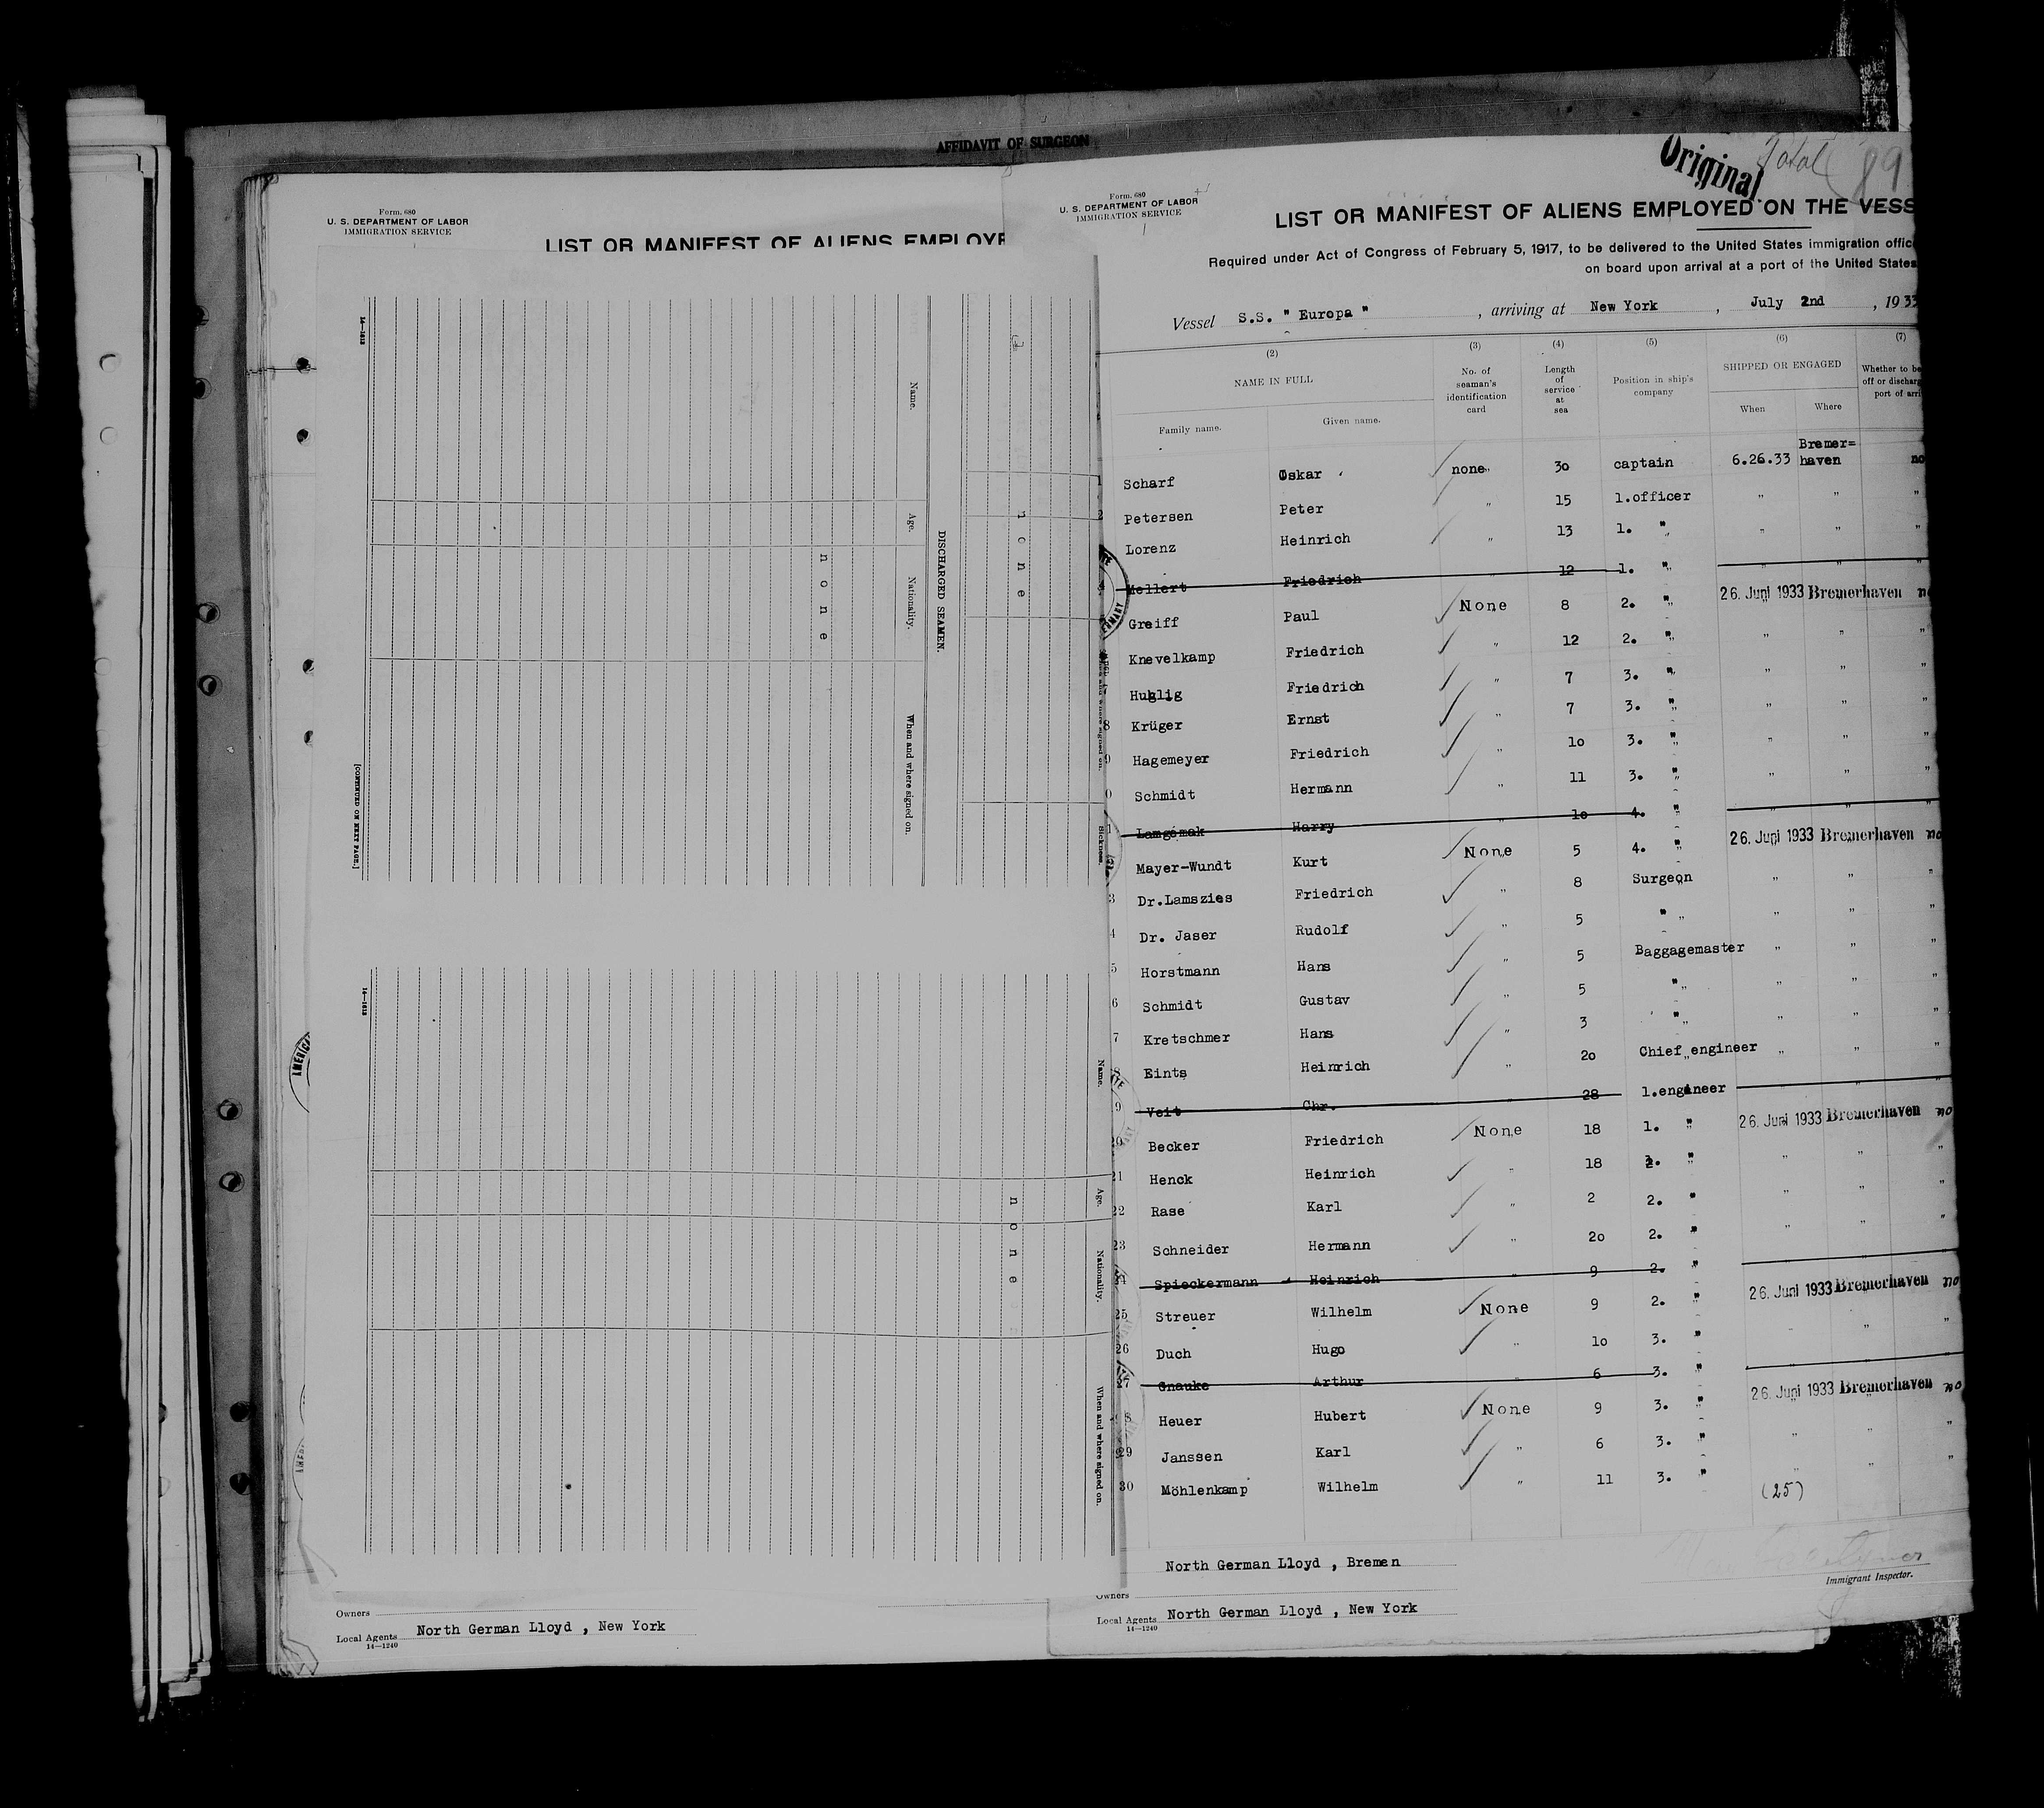 AFFIDAVIT OF SURGEON
Form. 680
U. S. DEPARTMENT OF LABOR
IMMIGRATION SERVICE
LIST OR MANIFEST OF ALIENS EMPLOYE
14—1813
Name.
Age.
Nationality.
When and where signed on.
none
DISCHARGED SEAMEN.
none
[CONTINUED ON NEXT PAGE.]
Sickness.
14—1813
Name.
Age.
Nationality.
When and where signed on.
none
Owners
Local Agents North German Lloyd , New York
14—1240
Original
Total 89
Form. 680
U. S. DEPARTMENT OF LABOR
IMMIGRATION SERVICE
LIST OR MANIFEST OF ALIENS EMPLOYED ON THE VESS
Required under Act of Congress of February 5, 1917, to be delivered to the United States immigration offic
on board upon arrival at a port of the United States
Vessel S.S. " Europa " , arriving at New York , July 2nd , 1933
(2) (3) (4) (5) (6) (7)
NAME IN FULL
Family name. Given name.
No. of seaman's identification card
Length of service at sea
Position in ship's company
SHIPPED OR ENGAGED
When Where
Whether to be
off or discharg
port of arri
1 Scharf Oskar none 30 captain 6.26.33 Bremer=haven no
2 Petersen Peter " 15 1.officer " " "
Lorenz Heinrich " 13 1. " " " "
4 Mellert Friedrich " 12 1. " " " "
Greiff Paul None 8 2. " 26. Juni 1933 Bremerhaven no
Knevelkamp Friedrich " 12 2. " " " "
Huhlig Friedrich " 7 3. " " " "
8 Krüger Ernst " 7 3. " " " "
9 Hagemeyer Friedrich " 1o 3. " " " "
0 Schmidt Hermann " 11 3. " " " "
1 Lamgemak Harry " 1o 4. " " " "
Mayer-Wundt Kurt None 5 4. " 26. Juni 1933 Bremerhaven no
3 Dr.Lamszies Friedrich " 8 Surgeon " " "
4 Dr. Jaser Rudolf " 5 " " " "
5 Horstmann Hans " 5 Baggagemaster " " "
6 Schmidt Gustav " 5 " " " "
7 Kretschmer Hans " 3 " " " "
8 Eints Heinrich " 2o Chief engineer " " "
9 Veit Chr. " 28 1.engineer " " "
20 Becker Friedrich None 18 1. " 26. Juni 1933 Bremerhaven no
21 Henck Heinrich " 18 2. " " " "
22 Rase Karl " 2 2. " " " "
23 Schneider Hermann " 2o 2. " " " "
24 Spieckermann Heinrich " 9 2. " " "
25 Streuer Wilhelm None 9 2. " 26. Juni 1933 Bremerhaven no
26 Duch Hugo " 1o 3. " " " "
27 Gnauke Arthur " 6 3. " " " "
28 Heuer Hubert None 9 3. " 26. Juni 1933 Bremerhaven no
29 Janssen Karl " 6 3. " " " "
30 Möhlenkamp Wilhelm " 11 3. " " " "
(25)
North German Lloyd , Bremen
Owners
Immigrant Inspector.
Local Agents North German Lloyd , New York
14—1240